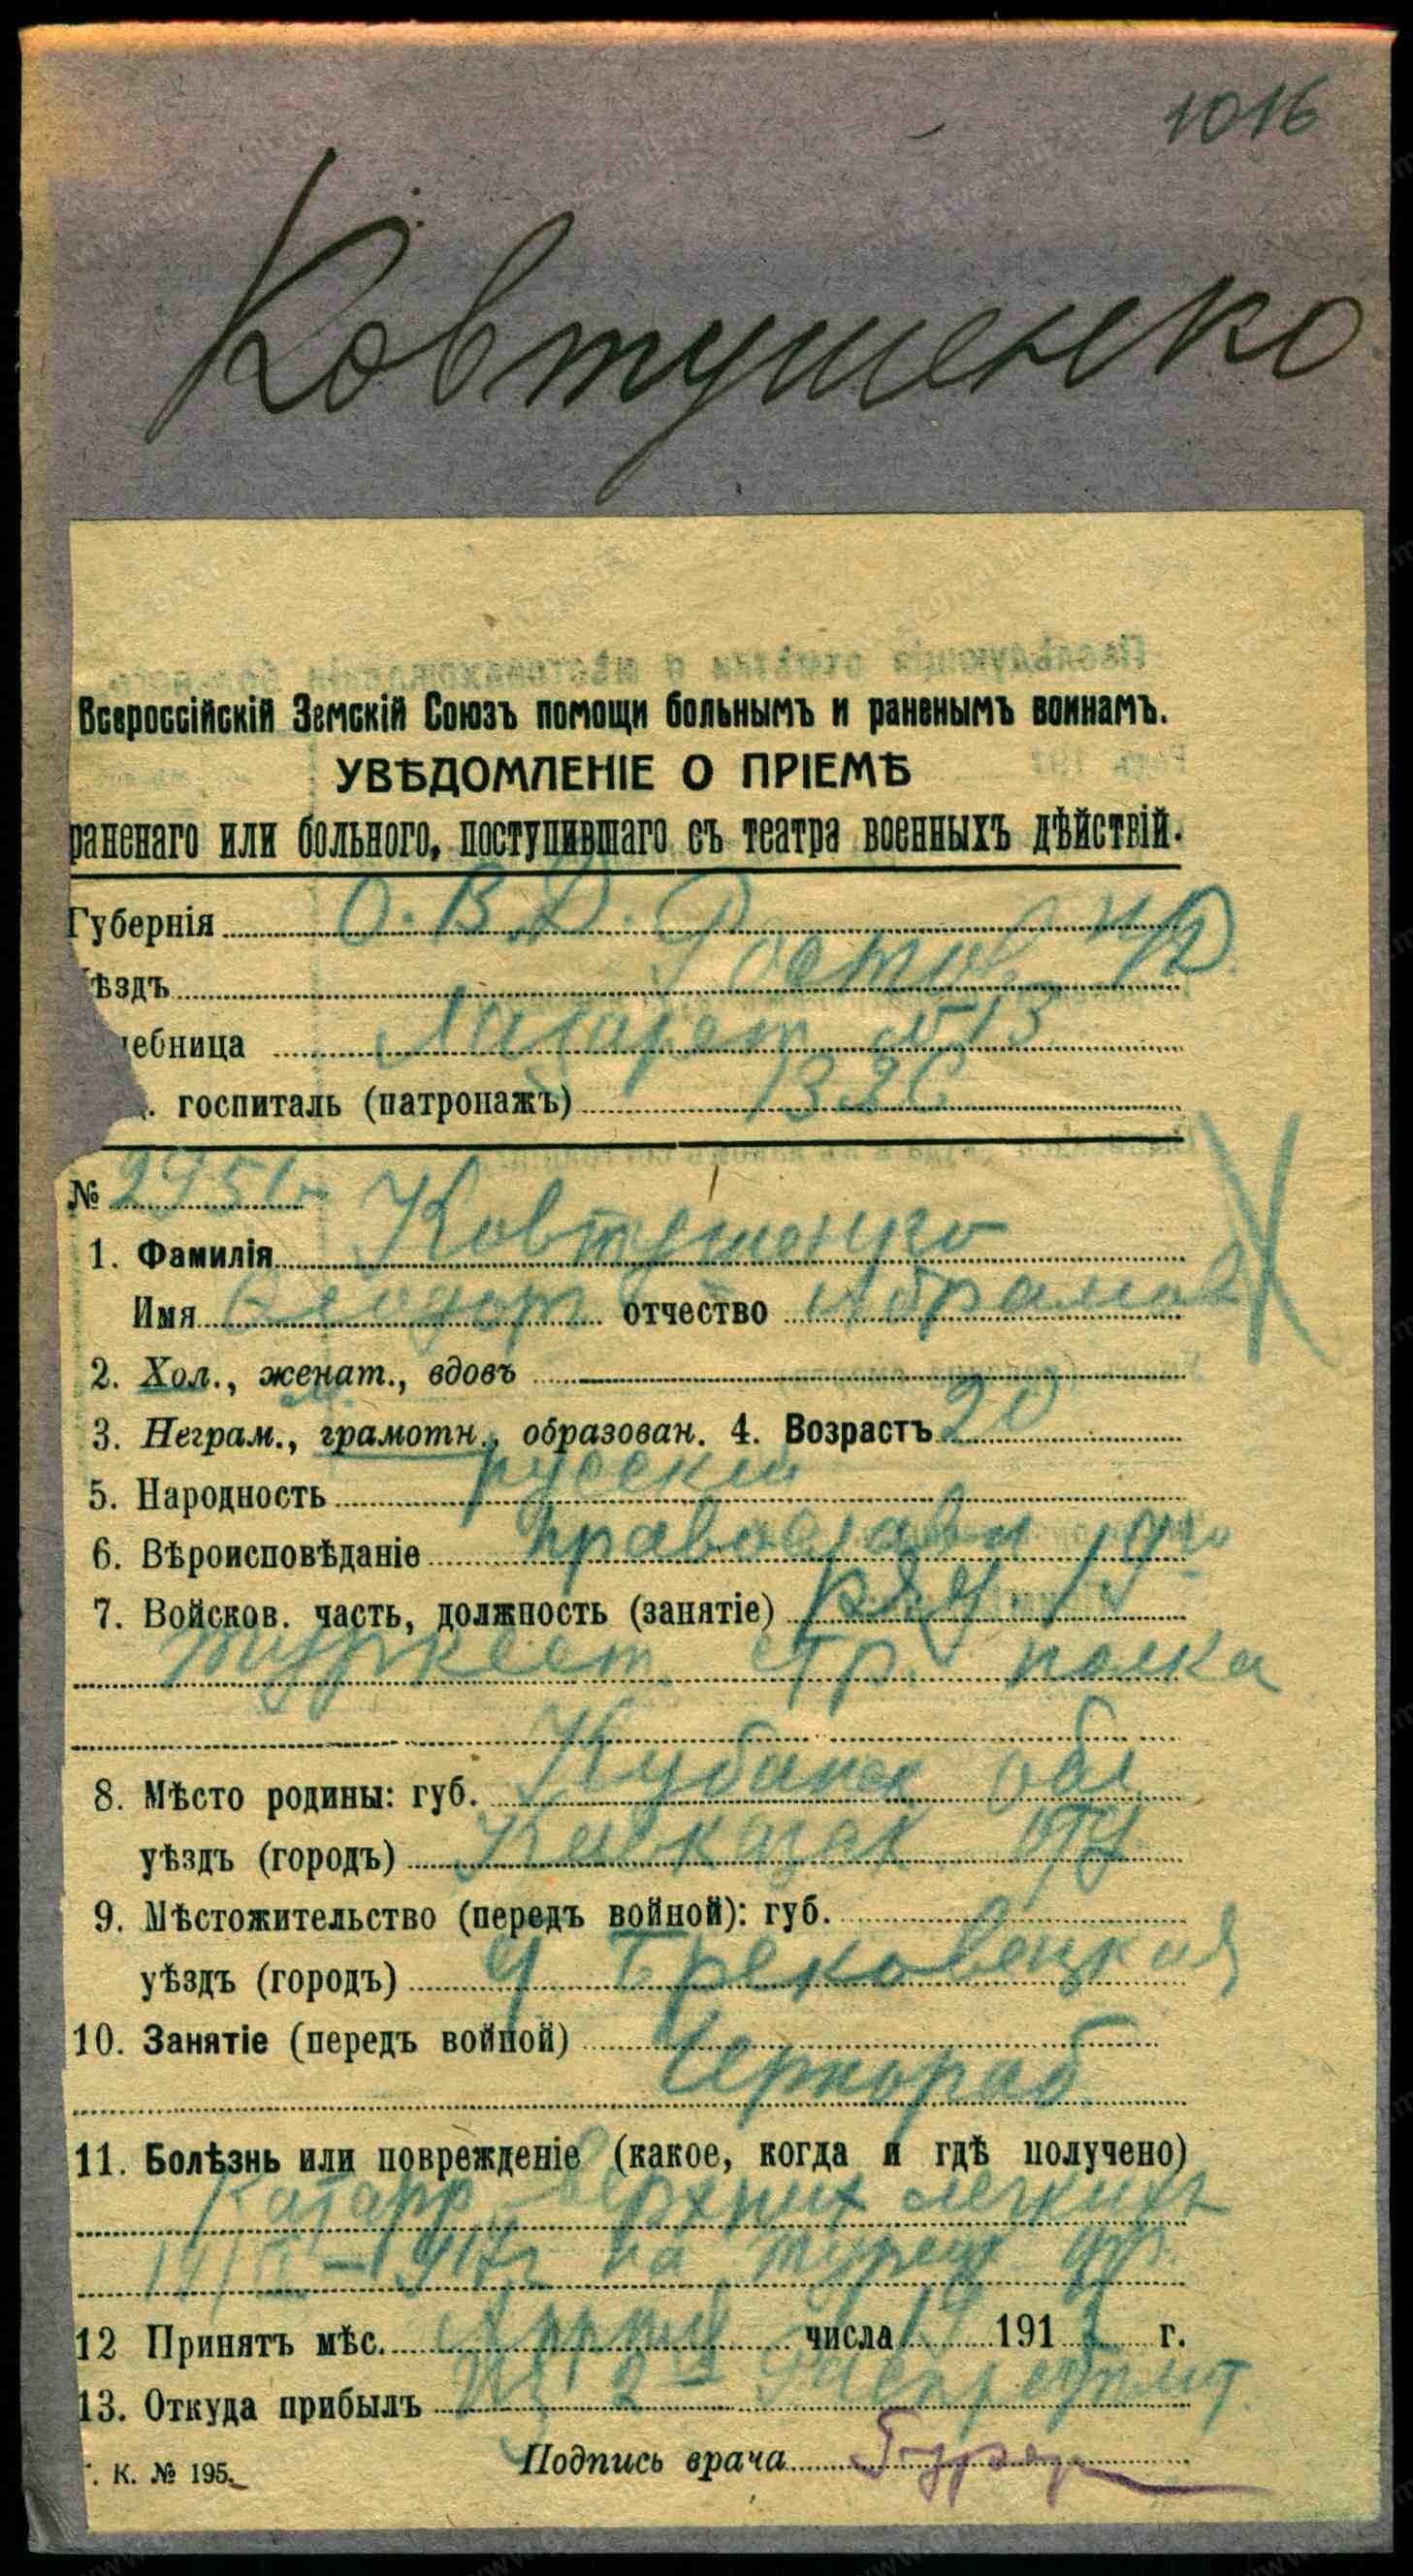 1016
Ковтушенко
Всероссійскій Земскій Союзъ помощи больнымъ и раненымъ воинамъ.
УВѢДОМЛЕНІЕ О ПРІЕМѢ
раненаго или больного, поступившаго съ театра военныхъ дѣйствій.
Губернія О. В. Д. Ростов н/Д
ѣздъ
чебница Лазарет № 13
. госпиталь (патронажъ) 1326
№
1. Фамилія Ковтушенко
Имя Феодор отчество Абрамов
2. Хол., женат., вдовъ
3. Неграм., грамотн., образован. 4. Возрастъ 20
5. Народность русскій
6. Вѣроисповѣданіе православн
7. Войсков. часть, должность (занятіе) ряд. 19го
туркест. стр. полка
8. Мѣсто родины: губ. Кубанск обл
уѣздъ (городъ) Кавказск отд
9. Мѣстожительство (передъ войной): губ.
уѣздъ (городъ)
10. Занятіе (передъ войной)
Чернораб
11. Болѣзнь или поврежденіе (какое, когда и гдѣ получено)
Катарр верхних легких
на турецк фр.
12 Принятъ мѣс. числа 19 1917 г.
13. Откуда прибылъ Из 2
Подпись врача
. К. № 195.